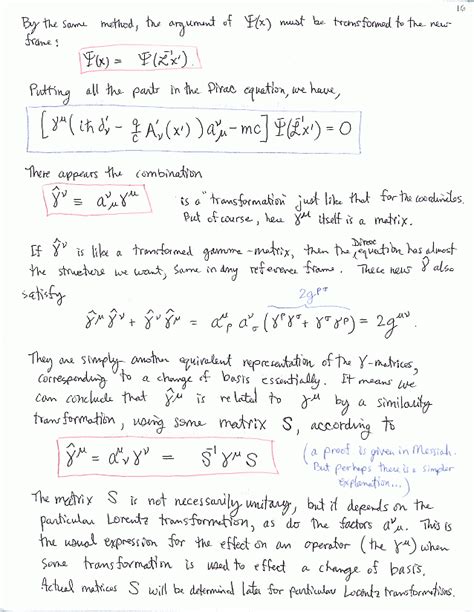 10
By the same method, the argument of Ψ(x) must be transformed to the new
frame:
Ψ(x) = Ψ(ℒ⁻¹x′).
Putting all the parts in the Dirac equation, we have,
[γ^μ(iħ∂′_ν − q/c A′_ν(x′)) a^ν_μ − mc] Ψ(ℒ⁻¹x′) = 0
There appears the combination
γ̂^ν ≡ a^ν_μ γ^μ is a "transformation" just like that for the coordinates.
But of course, here γ^μ itself is a matrix.
If γ̂^ν is like a transformed gamma-matrix, then the Dirac equation has almost
the structure we want, same in any reference frame. These new γ̂ also
satisfy
2g^ρσ
γ̂^μ γ̂^ν + γ̂^ν γ̂^μ = a^μ_ρ a^ν_σ (γ^ρ γ^σ + γ^σ γ^ρ) = 2g^μν.
They are simply another equivalent representation of the γ-matrices,
corresponding to a change of basis essentially. It means we
can conclude that γ̂^μ is related to γ^μ by a similarity
transformation, using some matrix S, according to
γ̂^μ = a^μ_ν γ^ν = S⁻¹ γ^μ S
(a proof is given in Messiah.
But perhaps there is a simpler
explanation...)
The matrix S is not necessarily unitary, but it depends on the
particular Lorentz transformation, as do the factors a^μ_ν. This is
the usual expression for the effect on an operator (the γ^μ) when
some transformation is used to effect a change of basis.
Actual matrices S will be determined later for particular Lorentz transformations.